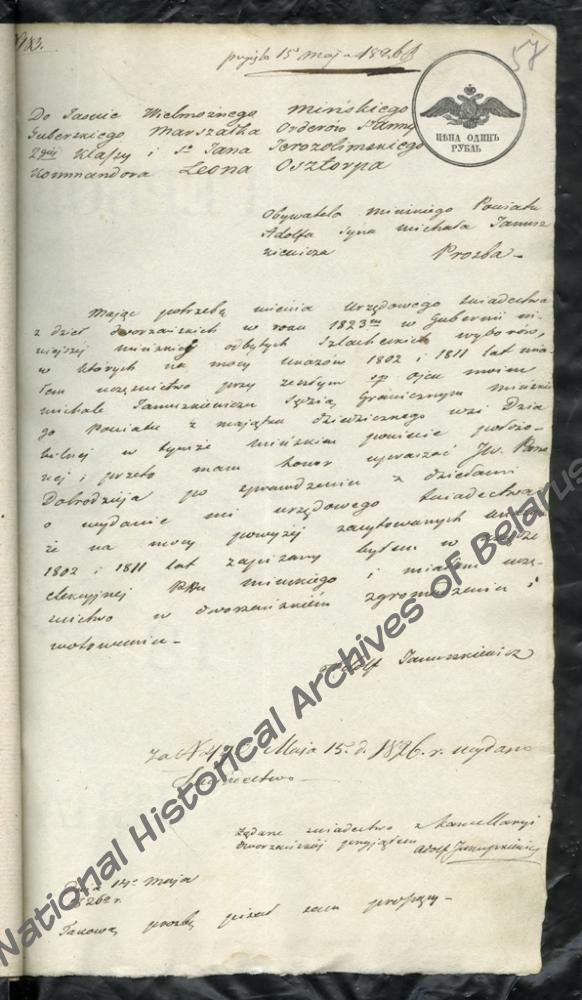 183.
przyięta 15 maja 1826
57
ЦѢНА ОДИНЪ
РУБЛЬ
Do Jaśnie Wielmożnego Mińskiego
Guberskiego Marszałka Orderów Sᵗ Anny
2giej Klassy i Sᵗ Jana Jerozolimskiego
Kommandora Leona Osztorpa
Obywatela Mińskiego Powiatu
Adolfa Syna Michała Janusz
kiewicza Prozba
Mając potrzebę mienia Urzędowego świadectwa
z dzieł dworzańskich w roku 1823m w Gubernii ni-
niejszej mińskiej odbytych Szlacheckich wyborów,
w których na mocy Ukazów 1802 i 1811 lat mia-
łem uczęstnictwo przy zeszłym śp ojcu moim
Michale Januszkiewiczu Sędzią Granicznym Mińskie
go Powiatu z majątku dziedzicznego wsi Dzia
hilnej w tymże mińskim powiecie położo-
nej i przeto mam honor upraszać Jw. Pana
Dobrodzieja po sprawdzeniu z dziełami
o wydanie mi urzędowego świadectwa,
że na mocy powyżej zacytowanych
1802 i 1811 lat zapisany byłem w
elekcyjnej Pttu mińskiego i miałem uczę-
stnictwo w dworzańskiém zgromadzeniu i
wotowaniu
Adolf Januszkiewicz
za N 426 Maja 15. d. 1826. r. wydano
Świadectwo
Żądane świadectwo z Kancellaryi
dworzańskiéj przyjąłem Adolf Januszkiewicz
15 Maja
1826 r.
Takową prozbę pisał sam proszący
National Historical Archives of Belarus